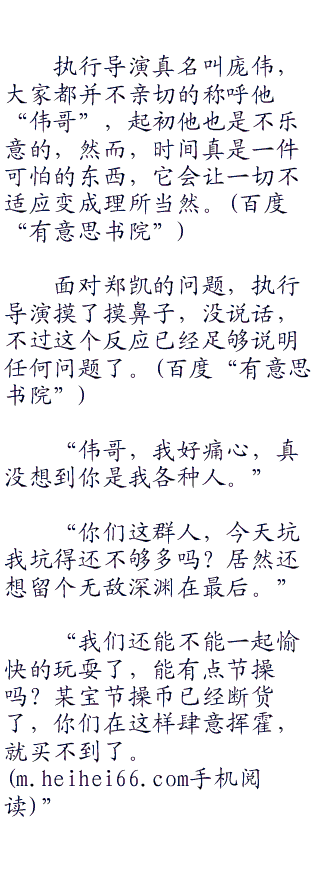 执行导演真名叫庞伟，
大家都并不亲切的称呼他
“伟哥”，起初他也是不乐
意的，然而，时间真是一件
可怕的东西，它会让一切不
适应变成理所当然。(百度
“有意思书院”)
面对郑凯的问题，执行
导演摸了摸鼻子，没说话，
不过这个反应已经足够说明
任何问题了。(百度“有意思
书院”)
“伟哥，我好痛心，真
没想到你是我各种人。”
“你们这群人，今天坑
我坑得还不够多吗？居然还
想留个无敌深渊在最后。”
“我们还能不能一起愉
快的玩耍了，能有点节操
吗？某宝节操币已经断货
了，你们在这样肆意挥霍，
就买不到了。
(m.heihei66.com手机阅
读)”